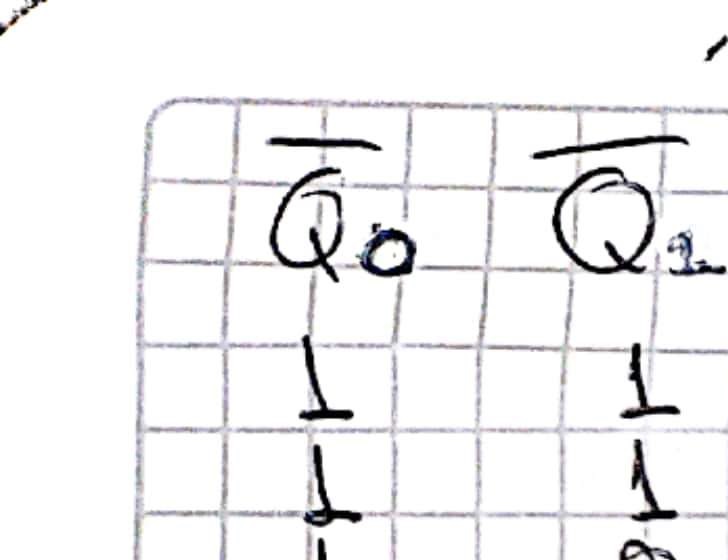 Q̅₀ Q̅₁
1 1
1 1